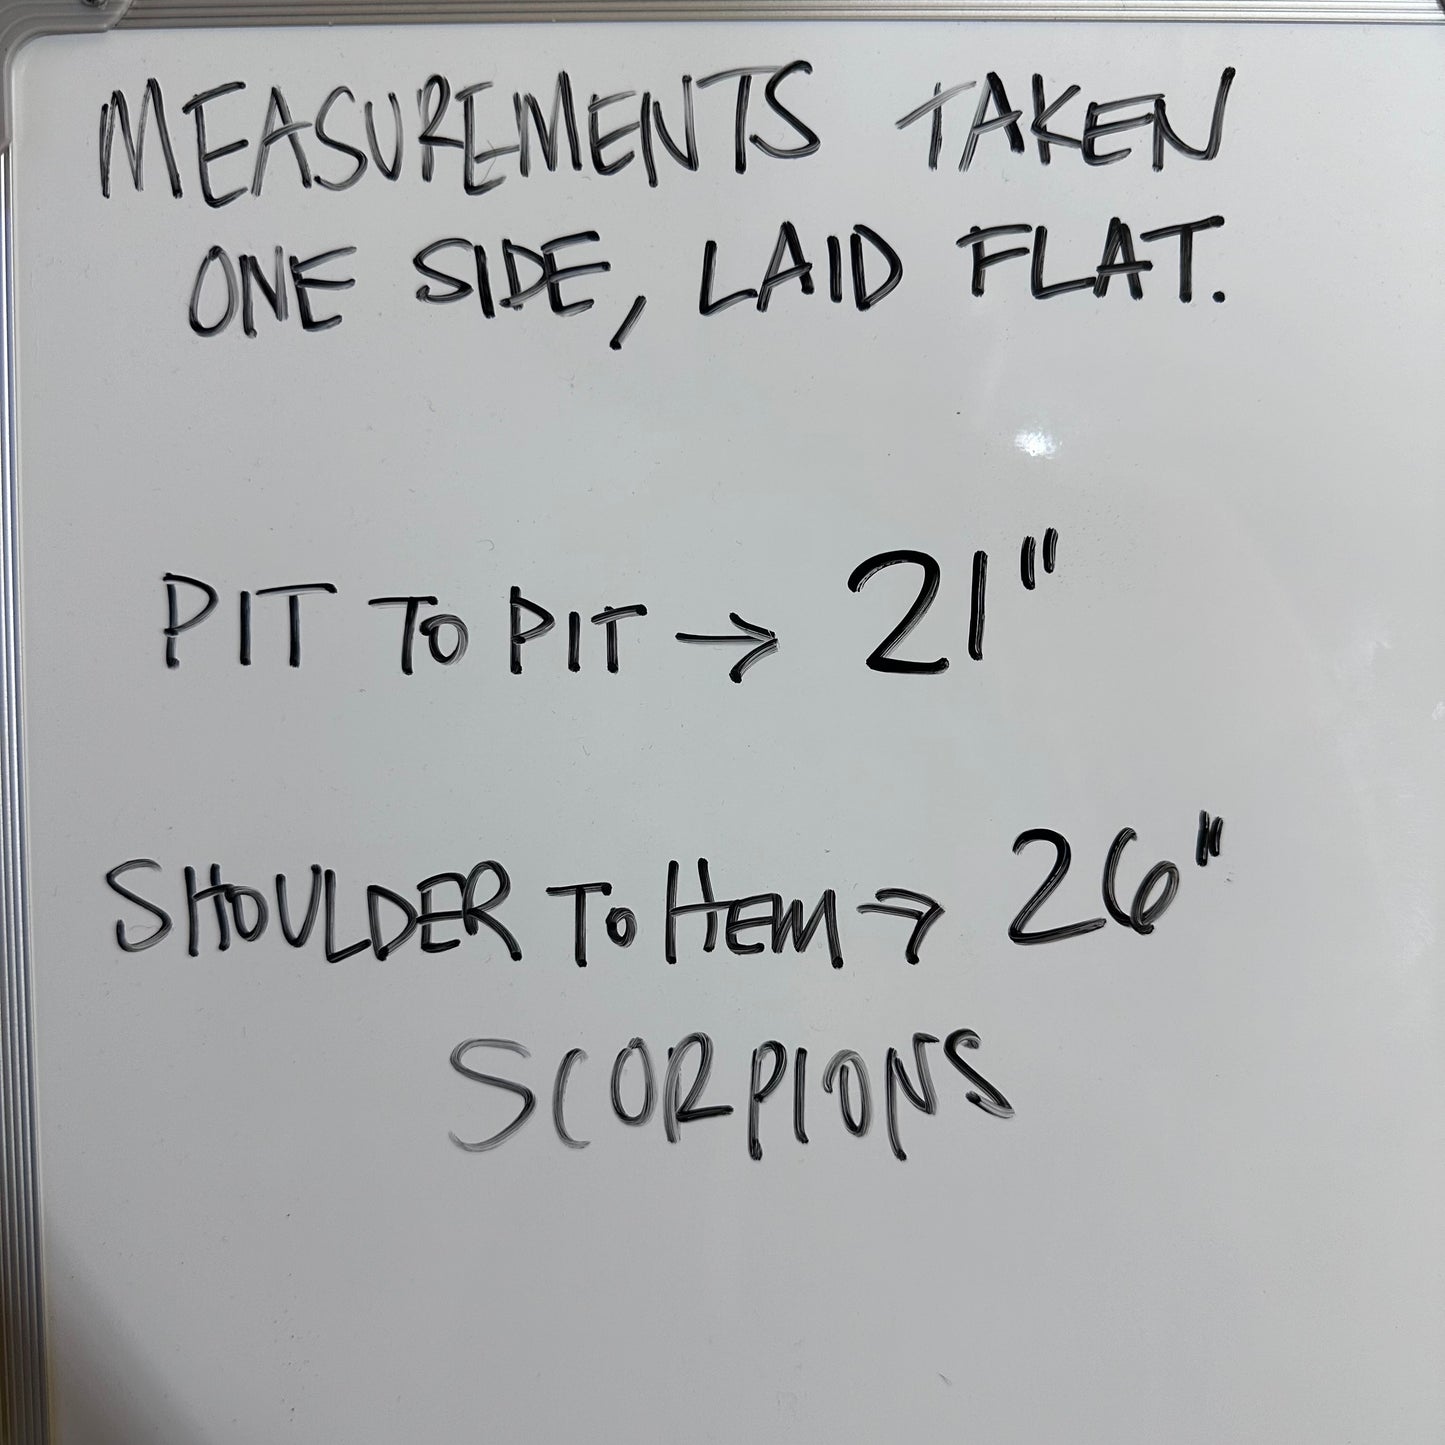 MEASUREMENTS TAKEN
ONE SIDE, LAID FLAT.
PIT TO PIT → 21"
SHOULDER TO HEM → 26"
SCORPIONS